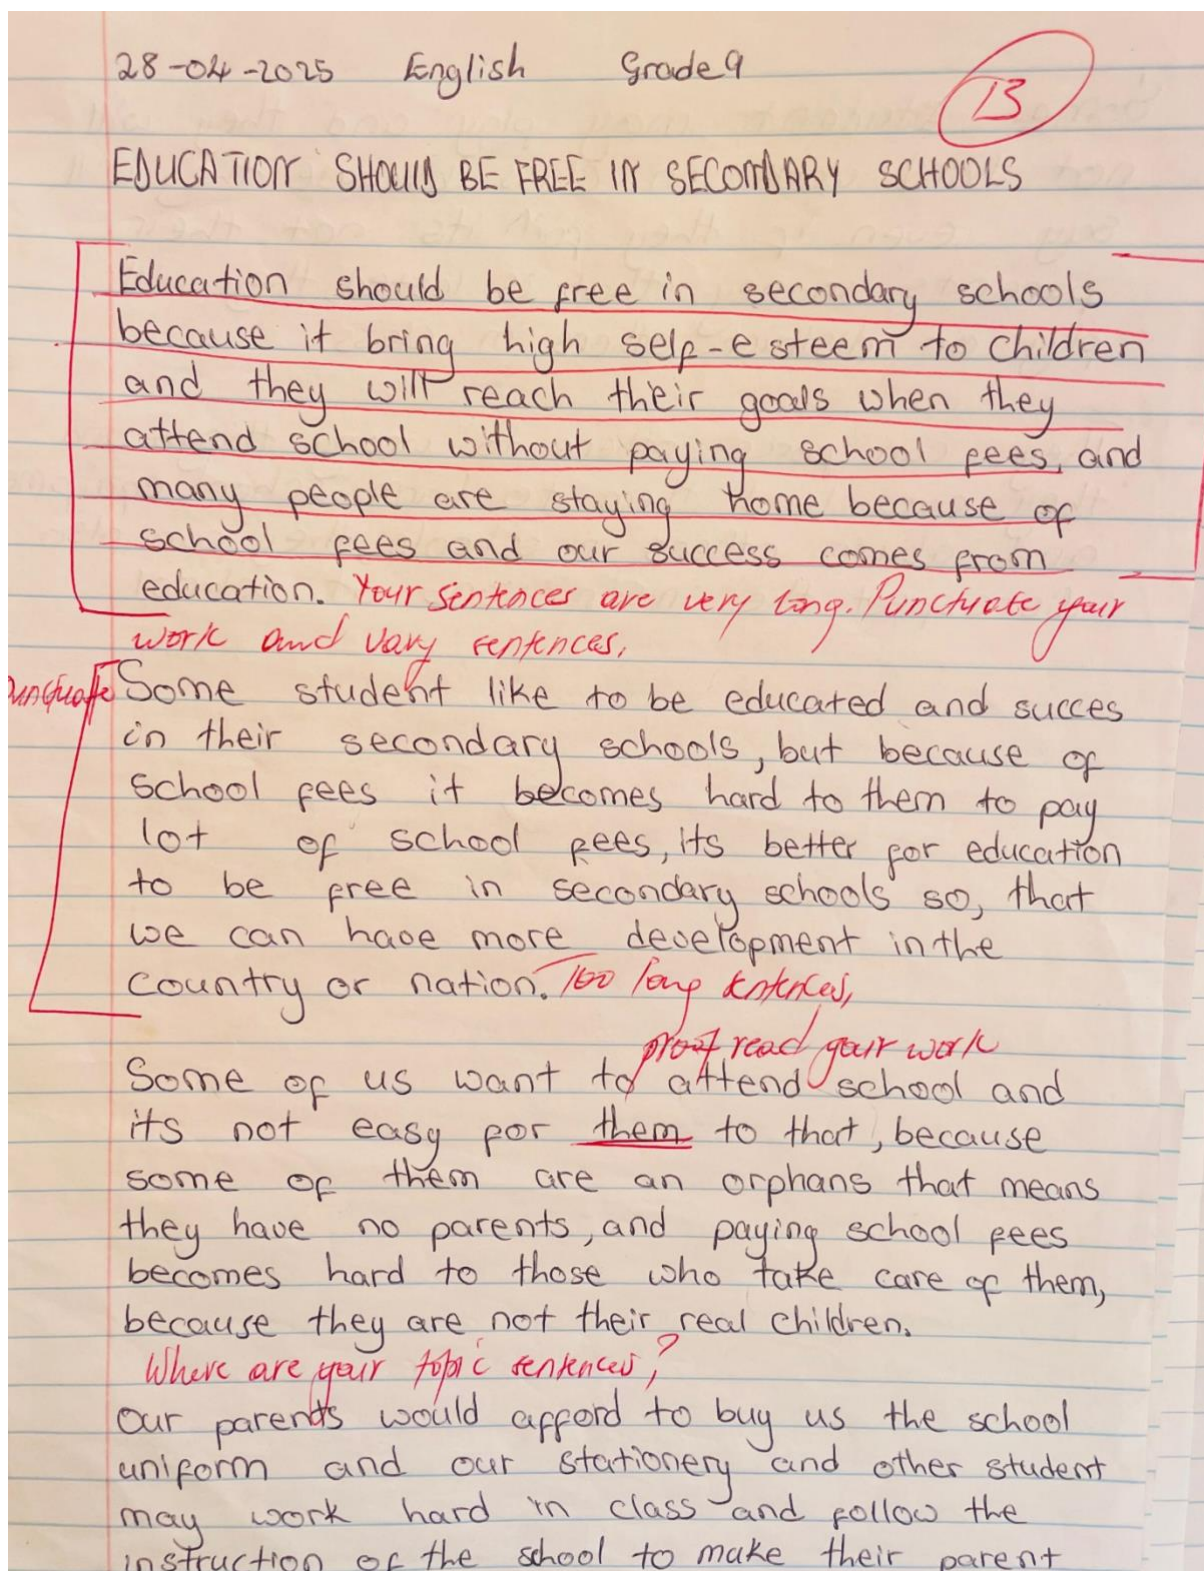 28-04-2025 English Grade 9
13
EDUCATION SHOULD BE FREE IN SECONDARY SCHOOLS
Education should be free in secondary schools
because it bring high self-esteem to children
and they will reach their goals when they
attend school without paying school fees, and
many people are staying home because of
school fees and our success comes from
education. Your sentences are very long. Punctuate your
work and vary sentences.
Punctuate Some student like to be educated and succes
in their secondary schools, but because of
school fees it becomes hard to them to pay
lot of school fees, its better for education
to be free in secondary schools so, that
we can have more development in the
country or nation. Too long sentences,
proof read your work
Some of us want to attend school and
its not easy for them to that, because
some of them are an orphans that means
they have no parents, and paying school fees
becomes hard to those who take care of them,
because they are not their real children.
Where are your topic sentences?
Our parents would afford to buy us the school
uniform and our stationery and other student
may work hard in class and follow the
instruction of the school to make their parent